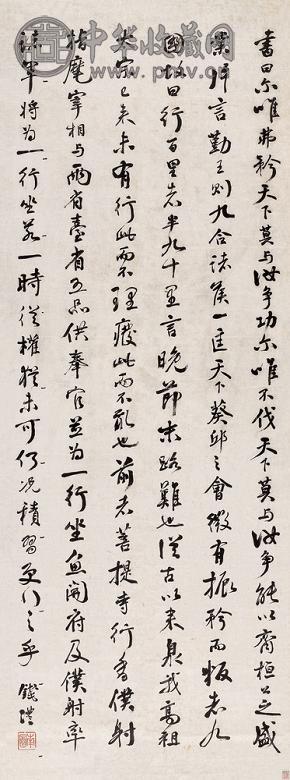 中华收藏网
書曰尔唯弗矜天下莫与汝争功尔唯不伐天下莫与汝争能以齊桓公之盛
業片言勤王則九合諸侯一匡天下葵邱之會微有振矜而叛者九
國故曰行百里者半九十里言晚節末路難也從古以来泉我高祖
太宗已来未有行此而不理廢此而不亂也前者菩提寺行香僕射
指麾宰相与兩省臺省五品供奉官並為一行坐魚開府及僕射率
諸軍將為一行坐若一時從權猶未可仍况積習更行之乎 錢灃